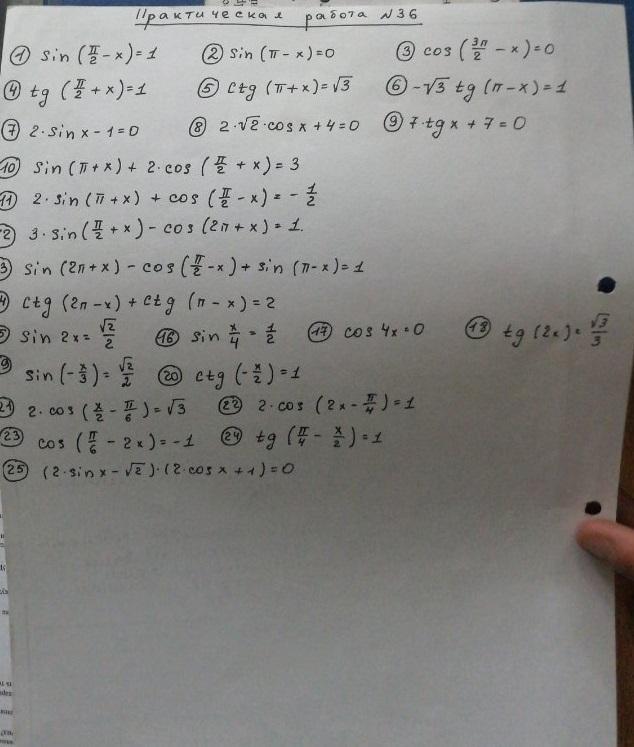 Практическая работа №36
① sin (π/2 - x) = 1 ② sin (π - x) = 0 ③ cos (3π/2 - x) = 0
④ tg (π/2 + x) = 1 ⑤ ctg (π + x) = √3 ⑥ -√3 tg (π - x) = 1
⑦ 2·sin x - 1 = 0 ⑧ 2·√2·cos x + 4 = 0 ⑨ 7·tg x + 7 = 0
10 sin (π + x) + 2·cos (π/2 + x) = 3
11 2·sin (π + x) + cos (π/2 - x) = -1/2
2 3·sin (π/2 + x) - cos (2π + x) = 1.
3 sin (2π + x) - cos (π/2 - x) + sin (π - x) = 1
4 ctg (2π - x) + ctg (π - x) = 2
5 sin 2x = √2/2 ⑯ sin x/4 = 1/2 ⑰ cos 4x = 0 ⑱ tg (2x) = √3/3
9 sin (-x/3) = √2/2 ⑳ ctg (-x/2) = 1
21 2·cos (x/2 - π/6) = √3 ㉒ 2·cos (2x - π/4) = 1
㉓ cos (π/6 - 2x) = -1 ㉔ tg (π/4 - x/2) = 1
㉕ (2·sin x - √2)·(2·cos x + 1) = 0